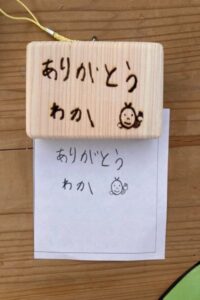 ありがとう
わかし
ありがとう
わかし